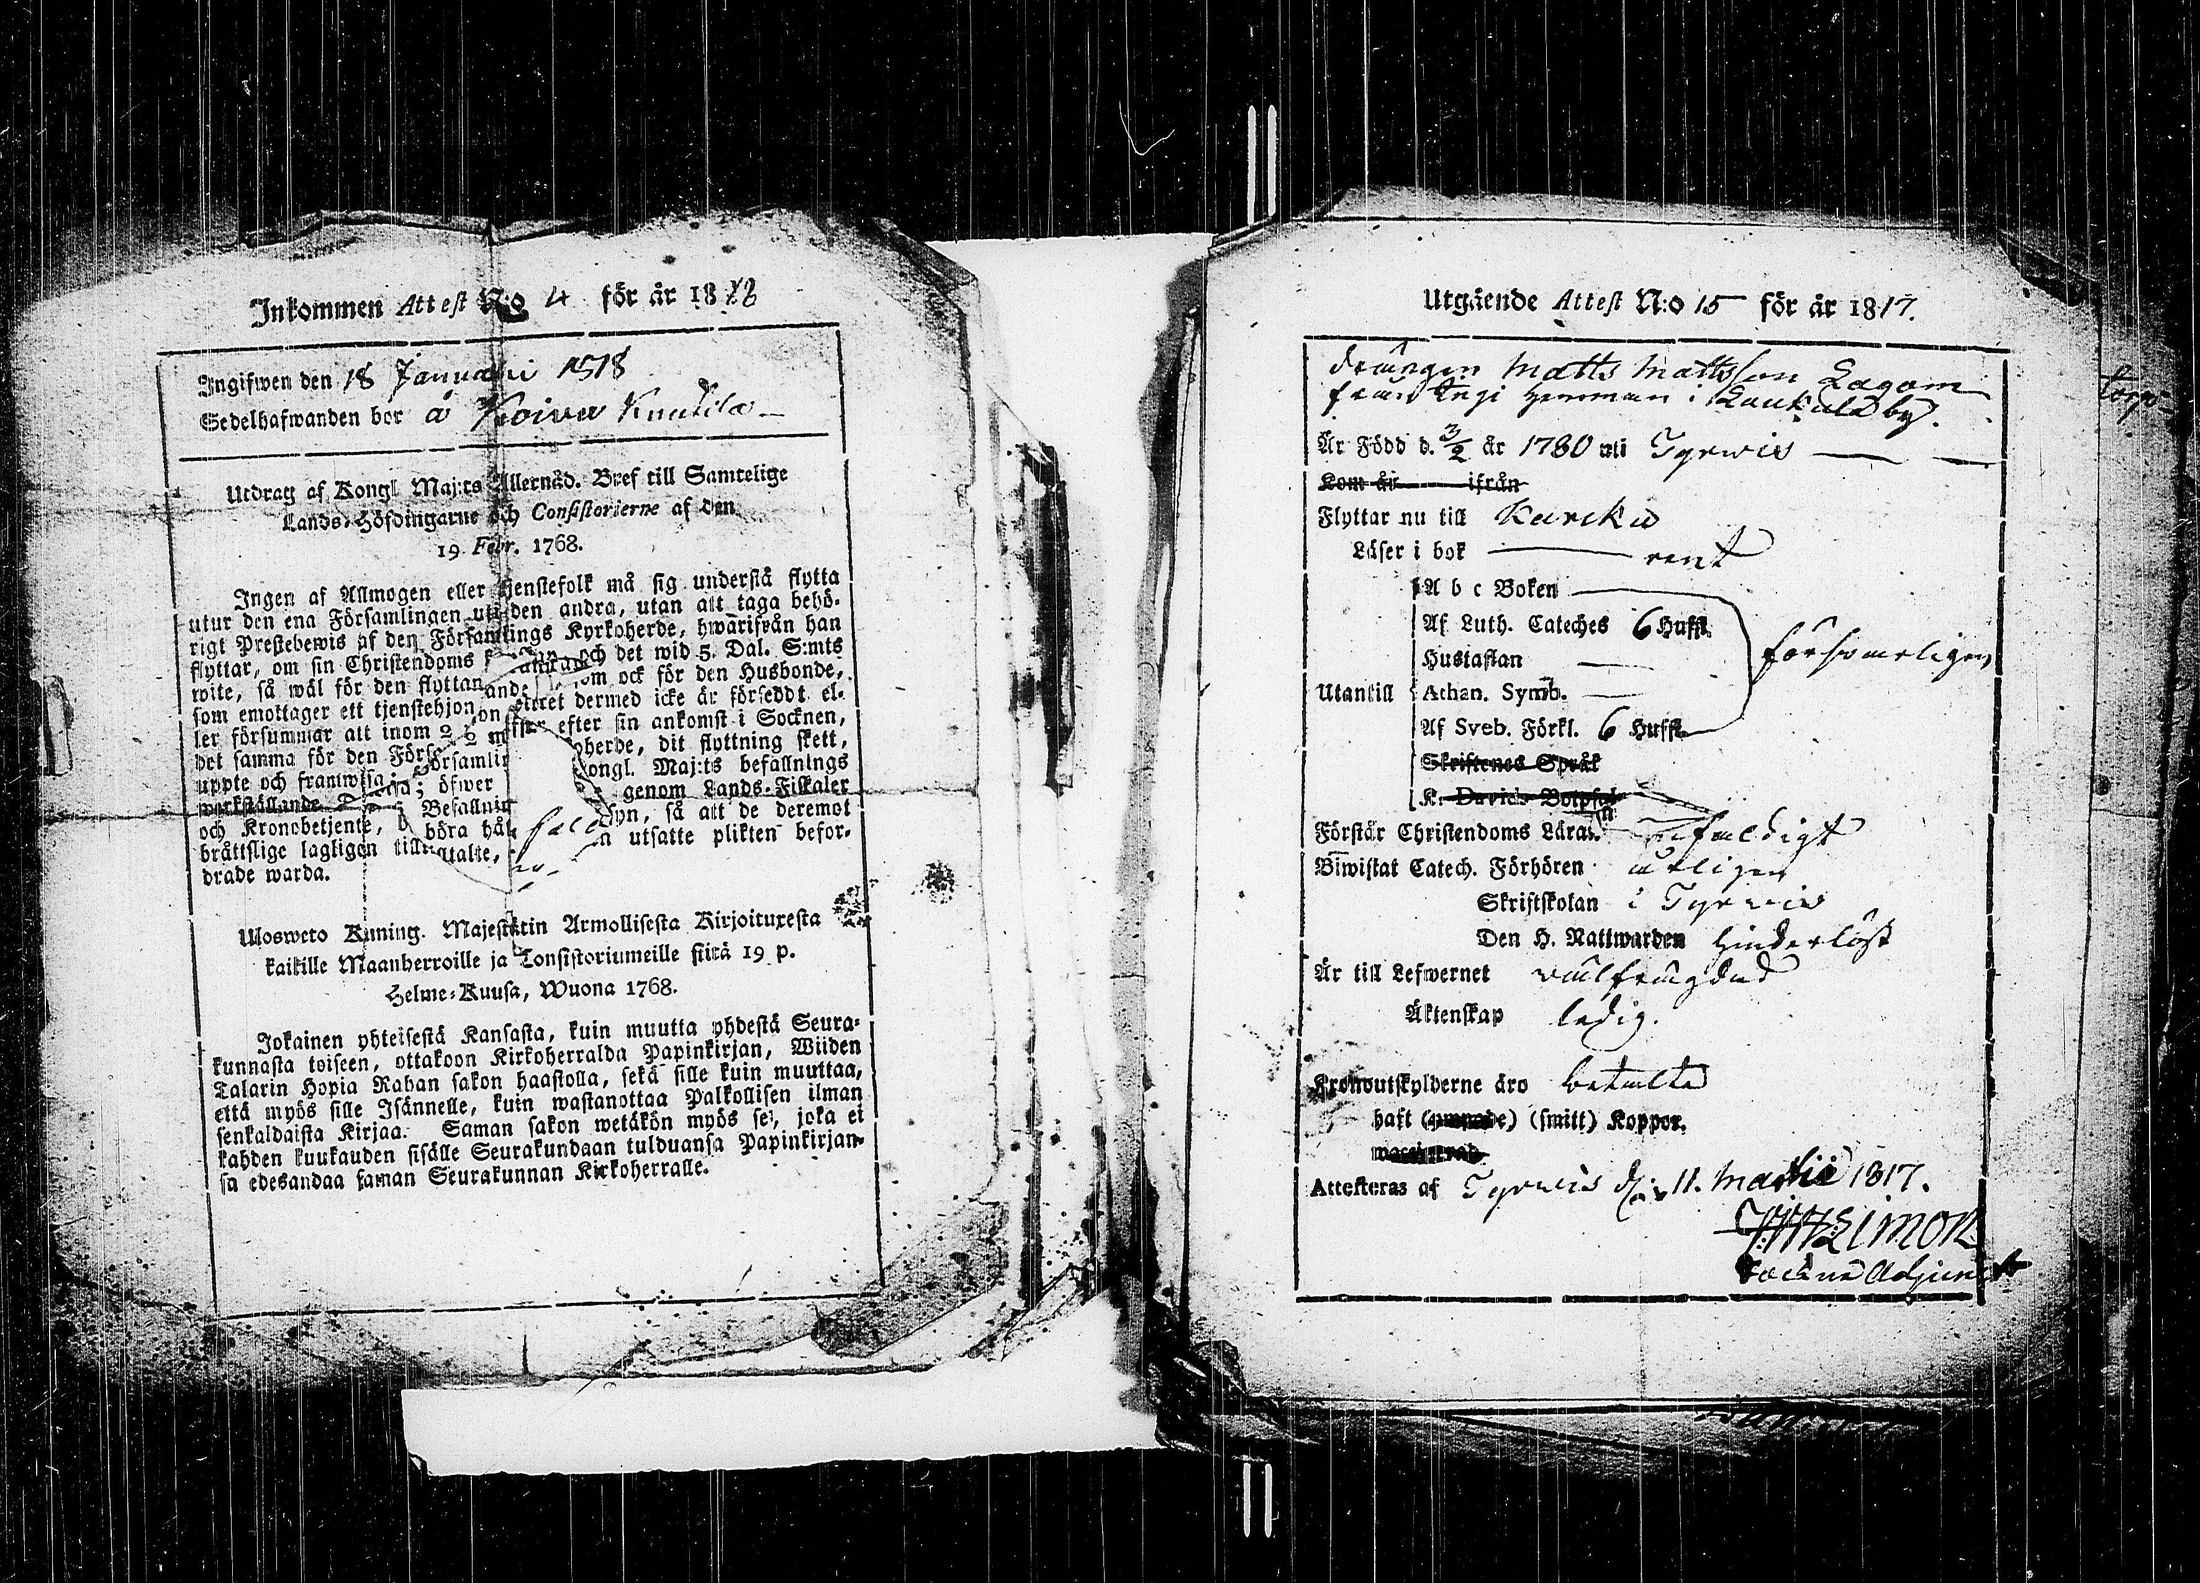 Inkommen Attest N:o 4 för år 1818
Ingifwen den 18 Januarii 1818
Sedelhafwanden bor å Koivu Knutila
Utdrag af Kongl Maj:ts Allernåd. Bref till Samtelige
Lands-Höfdingarne och Consistorierne af den
19 Febr. 1768.
Ingen af Allmogen eller tjenstefolk må sig understå flytta
utur den ena Församlingen uti den andra, utan att taga behö-
rigt Prestebewis af den Församlings Kyrkoherde, hwarifrån han
flyttar, om sin Christendoms och det wid 5. Dal. S:mts
wite, så wäl för den flyttande, som ock för den Husbonde,
som emottager ett tjenstehjon dermed icke är försedt el-
ler försummar att inom 2 efter sin ankomst i Socknen,
det samma för den Förs dit flyttning skett,
uppte och framwisa. öfwer Kongl. Maj:ts befallnings
werkställande genom Lands-Fiskaler
och Kronobetjente, böra hål så att de deremot
bråttslige lagligen tilltalte, utsatte plikten befor-
drade warda.
Ulosweto Kuning. Majestetin Armollisesta Kirjoituxesta
kaikille Maanherroille ja Consistoriumeille siitä 19 p.
Helme-Kuusa, Wuona 1768.
Jokainen yhteisestä Kansasta, kuin muutta yhdestä Seura-
kunnasta toiseen, ottakoon Kirkoherralda Papinkirjan, Wiiden
Talarin Hopia Rahan sakon haastolla, sekä sille kuin muuttaa,
että myös sille Isännelle, kuin wastanottaa Palkollisen ilman
senkaldaista Kirjaa. Saman sakon wetäkön myös se, joka ei
kahden kuukauden sisälle Seurakundaan tulduansa Papinkirjan-
sa edesandaa saman Seurakunnan Kirkoherralle.
Utgående Attest N:o 15 för år 1817.
drängen Matts Mattsson Lagom
från hemman i by.
Är Född d. 3/2 år 1780 uti Tyrwis
Kom år ifrån
Flyttar nu till Karcku
Läser i bok rent
A b c Boken
Af Luth. Cateches 6 Hufst.
Hustaflan försvarligen
Utantill Athan. Symb.
Af Sveb. Förkl. 6 Hufst.
Skriftenes Språk
K. Davids Botpsal
Förstår Christendoms Läran enfaldigt
Biwistat Catech. Förhören årligen
Skriftskolan i Tyrwis
Den H. Nattwarden hinderlöst
Är till Lefwernet wälfrägdad
Äktenskap ledig.
Kronoutskylderne äro betalte
haft (smitt) Koppor.
Attesteras af Tyrwis d. 11. Martii 1817.
Limon
Sockne Adjunct
torp